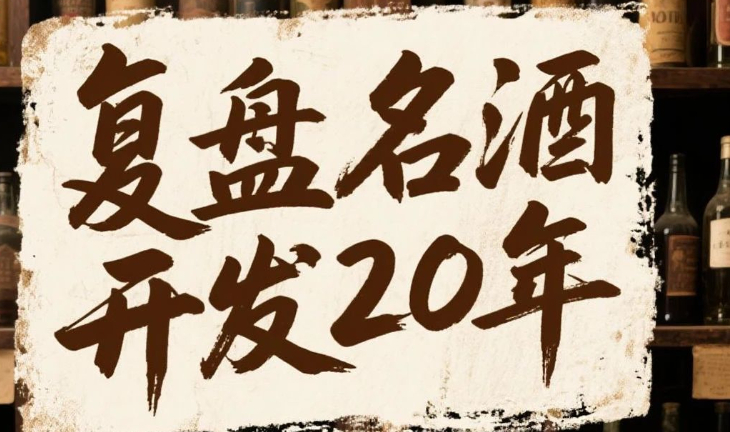 复盘名酒
开发20年